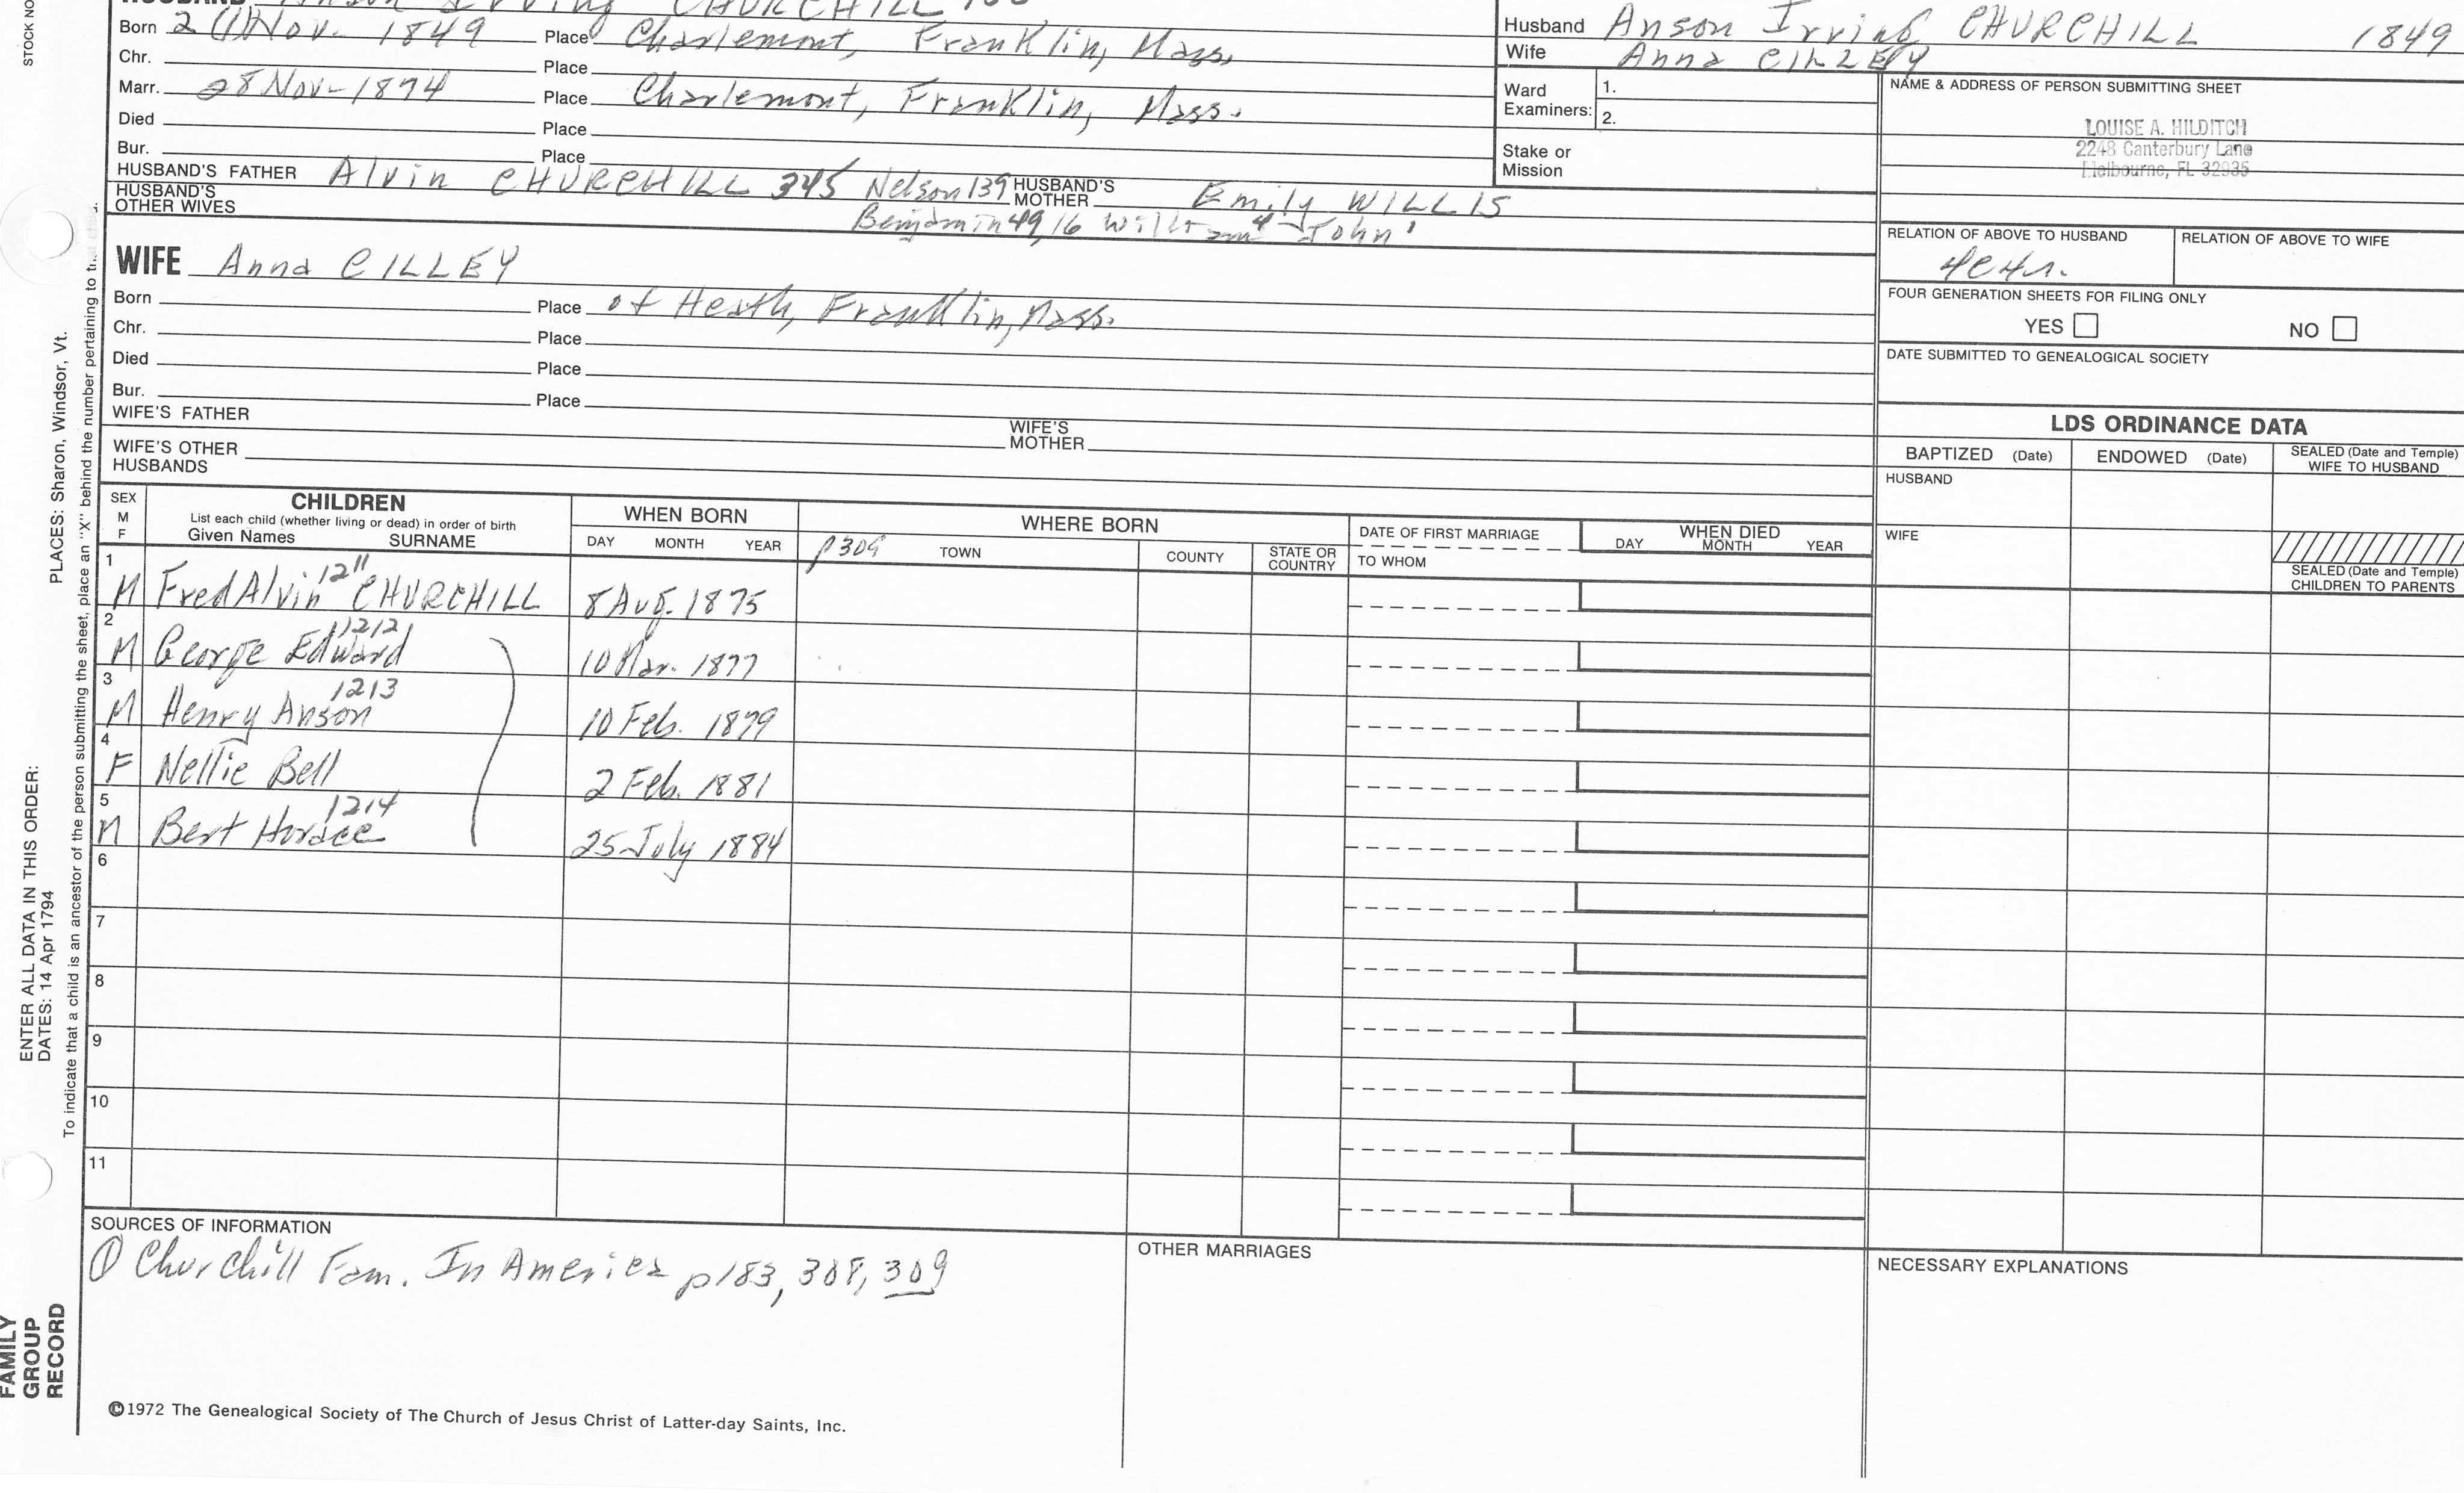 CHURCHILL
Born 2 (1) Nov. 1849 Place Charlemont, Franklin, Mass.
Chr. Place
Marr. 28 Nov. 1874 Place Charlemont, Franklin, Mass.
Died Place
Bur. Place
HUSBAND'S FATHER Alvin CHURCHILL 345 Nelson 139 HUSBAND'S MOTHER Emily WILLIS
HUSBAND'S OTHER WIVES Benjamin 49, 16 William 4 John 1
Husband Anson Irving CHURCHILL 1849
Wife Anna CILLEY
Ward Examiners: 1.
2.
Stake or Mission
NAME & ADDRESS OF PERSON SUBMITTING SHEET
LOUISE A. HILDITCH
2248 Canterbury Lane
Melbourne, FL 32935
RELATION OF ABOVE TO HUSBAND RELATION OF ABOVE TO WIFE
4c4r.
FOUR GENERATION SHEETS FOR FILING ONLY
YES NO
DATE SUBMITTED TO GENEALOGICAL SOCIETY
WIFE Anna CILLEY
Born Place of Heath, Franklin, Mass.
Chr. Place
Died Place
Bur. Place
WIFE'S FATHER WIFE'S MOTHER
WIFE'S OTHER HUSBANDS
LDS ORDINANCE DATA
BAPTIZED (Date) ENDOWED (Date) SEALED (Date and Temple) WIFE TO HUSBAND
HUSBAND
WIFE
SEALED (Date and Temple) CHILDREN TO PARENTS
SEX M F
CHILDREN
List each child (whether living or dead) in order of birth
Given Names SURNAME
WHEN BORN
DAY MONTH YEAR
WHERE BORN
p309 TOWN COUNTY STATE OR COUNTRY
DATE OF FIRST MARRIAGE
TO WHOM
WHEN DIED
DAY MONTH YEAR
1 M Fred Alvin 1211 CHURCHILL 8 Aug. 1875
2 M George Edward 1212 10 Mar. 1877
3 M Henry Anson 1213 10 Feb. 1879
4 F Nellie Bell 2 Feb. 1881
5 M Bert Horace 1214 25 July 1884
6
7
8
9
10
11
SOURCES OF INFORMATION
① Churchill Fam. In America p183, 308, 309
OTHER MARRIAGES
NECESSARY EXPLANATIONS
©1972 The Genealogical Society of The Church of Jesus Christ of Latter-day Saints, Inc.
STOCK NO
ENTER ALL DATA IN THIS ORDER: PLACES: Sharon, Windsor, Vt.
DATES: 14 Apr 1794
To indicate that a child is an ancestor of the person submitting the sheet, place an "X" behind the number pertaining to
FAMILY
GROUP
RECORD